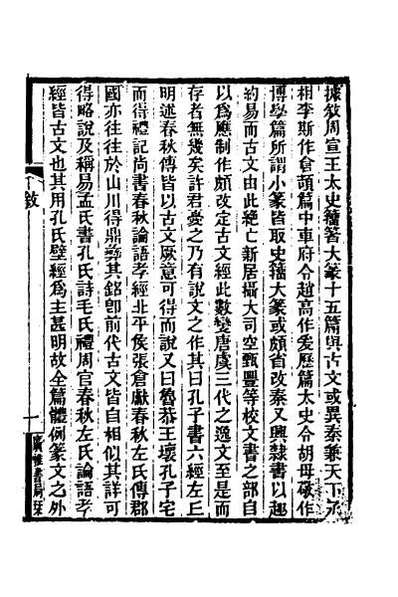 據敘周宣王太史籒箸大篆十五篇與古文或異秦兼天下丞
相李斯作倉頡篇中車府令趙高作爰歷篇太史令胡母敬作
博學篇所謂小篆皆取史籒大篆或頗省改秦又興隸書以趣
約易而古文由此絶亡新居攝大司空甄豐等校文書之部自
以爲應制作頗改定古文經此數變唐虞三代之逸文至是而
存者無幾矣許君憂之乃有說文之作其曰孔子書六經左丘
明述春秋傳皆以古文厥意可得而說又曰魯恭王壞孔子宅
而得禮記尚書春秋論語孝經北平侯張倉獻春秋左氏傳郡
國亦往往於山川得鼎彝其銘卽前代古文皆自相似其詳可
得略說及稱易孟氏書孔氏詩毛氏禮周官春秋左氏論語孝
經皆古文也其用孔氏壁經爲主甚明故全篇體例篆文之外
敘
一
廣雅書局栞